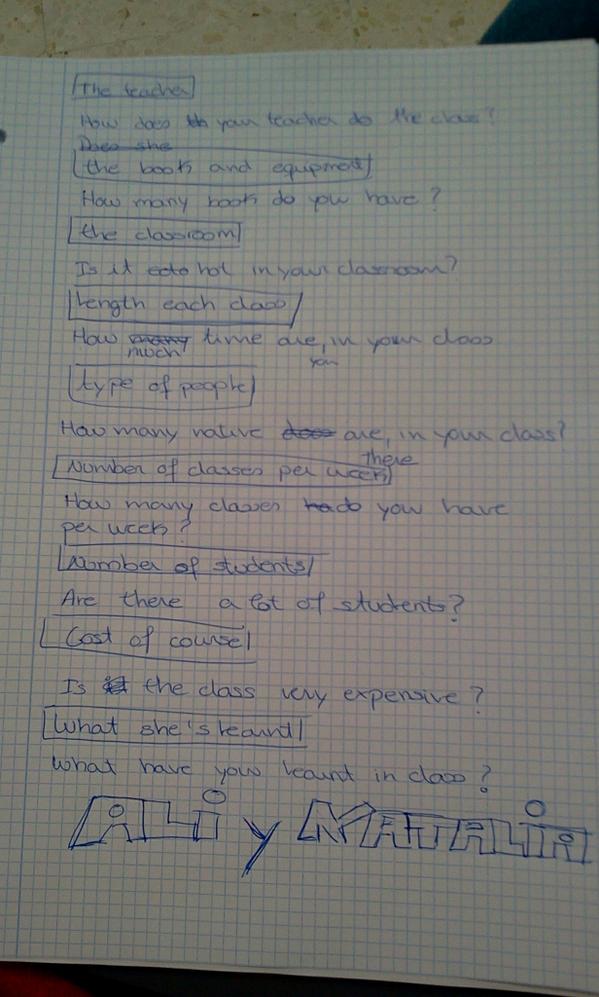 The teacher
How does your teacher do the class?
Does she
the book and equipment
How many book do you have?
the classroom
Is it hot in your classroom?
Length each class
How many time are, in your class
much you
type of people
How many native does are, in your class?
there
Number of classes per week
How many classes do you have
per week?
Number of students
Are there a lot of students?
Cost of course
Is it the class very expensive?
What she's learnt
What have you learnt in class?
ALi y NATALiA